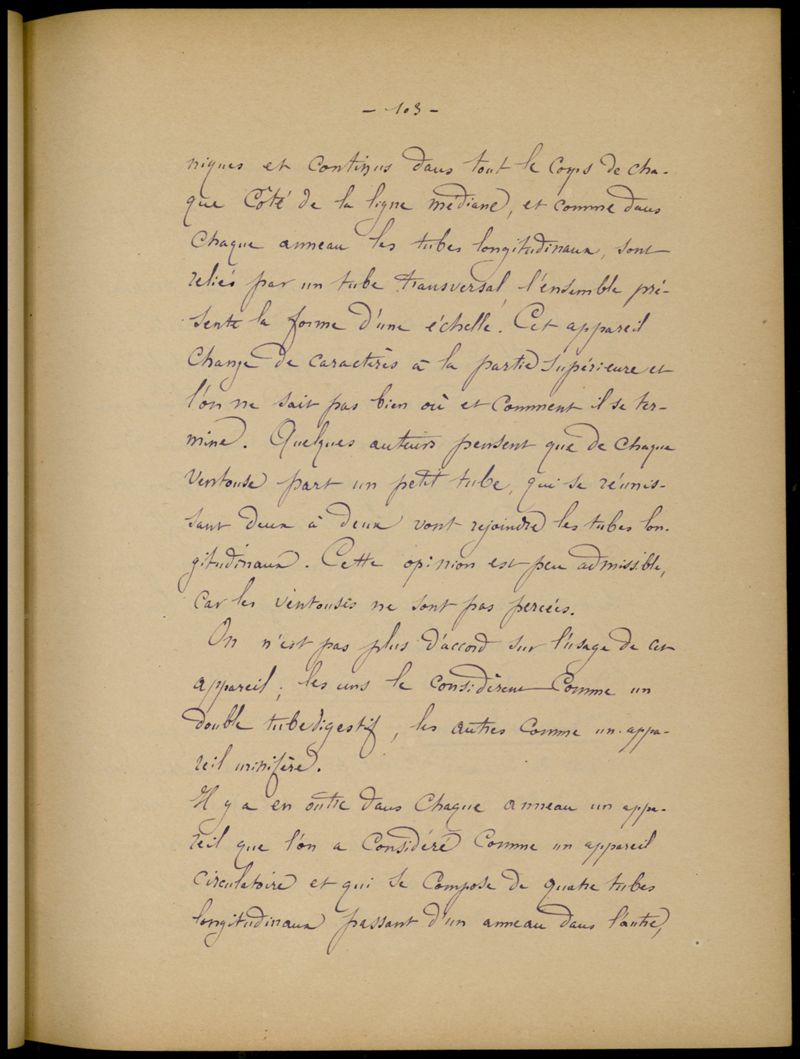 - 103 -
niques et continus dans tout le corps de cha-
que côté de la ligne médiane, et comme dans
chaque anneau les tubes longitudinaux, sont
reliés par un tube transversal l'ensemble pré-
sente la forme d'une échelle. Cet appareil
change de caractères à la partie supérieure et
l'on ne sait pas bien où et comment il se ter-
mine. Quelques auteurs pensent que de chaque
ventouse part un petit tube, qui se réunis-
sant deux à deux vont rejoindre les tubes lon-
gitudinaux. Cette opinion est peu admissible,
car les ventouses ne sont pas percées.
On n'est pas plus d'accord sur l'usage de cet
appareil; les uns le considèrent comme un
double tube digestif, les autres comme un appa-
reil urinifère.
Il y a en outre dans chaque anneau un appa-
reil que l'on a considéré comme un appareil
circulatoire et qui se compose de quatre tubes
longitudinaux passant d'un anneau dans l'autre,